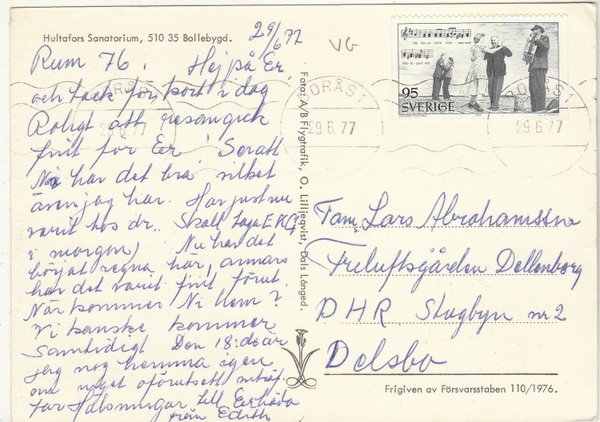 Hultafors Sanatorium, 510 35 Bollebygd.
29/6 77
VG
Rum 76. Hej på Er
och tack för kort i dag
Roligt att resan gick
fint för Er! Se att
Ni har det bra vilket
även jag har. Har just nu
varit hos dr.. Skall taga EKG
i morgon) Nu har det
börjat regna här, annars
har det varit fint förut.
När kommer Ni hem?
Vi kanske kommer
samtidigt Den 18:de är
jag nog hemma igen
om något oförutsett
far Hälsningar till Er båda
från Edith
Foto: A/B Flygtrafik, O. Lilljeqvist, Dals Långed.
95
SVERIGE
BORÅS 1
29.6.77
BORÅS 1
29.6.77
BORÅS 1
29.6.77
Fam. Lars Abrahamsson
Freluftsgården Dellenborg
DHR Stugbyn nr 2
Delsbo
Frigiven av Försvarsstaben 110/1976.